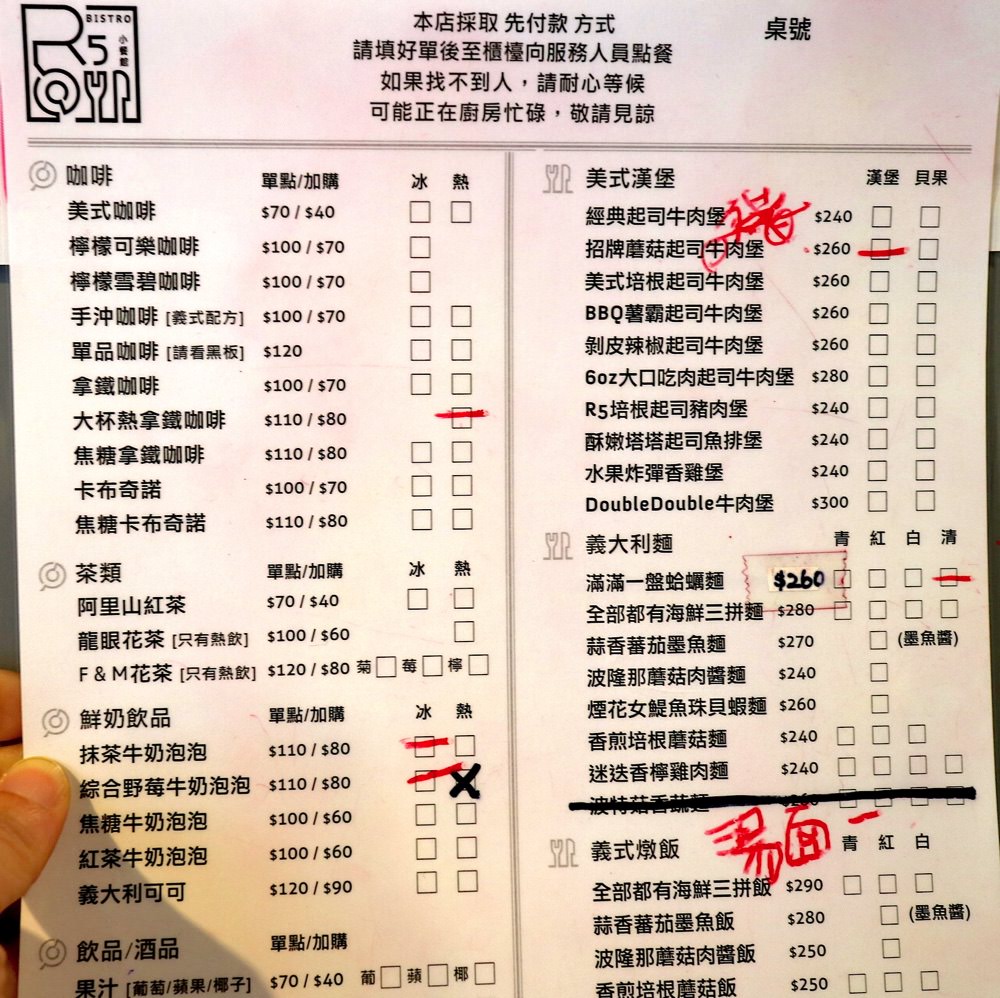 BISTRO
R5
小餐館
本店採取 先付款 方式
請填好單後至櫃檯向服務人員點餐
如果找不到人，請耐心等候
可能正在廚房忙碌，敬請見諒
桌號
咖啡 單點/加購 冰 熱
美式咖啡 $70 / $40
檸檬可樂咖啡 $100 / $70
檸檬雪碧咖啡 $100 / $70
手沖咖啡 [義式配方] $100 / $70
單品咖啡 [請看黑板] $120
拿鐵咖啡 $100 / $70
大杯熱拿鐵咖啡 $110 / $80
焦糖拿鐵咖啡 $110 / $80
卡布奇諾 $100 / $70
焦糖卡布奇諾 $110 / $80
茶類 單點/加購 冰 熱
阿里山紅茶 $70 / $40
龍眼花茶 [只有熱飲] $100 / $60
F & M花茶 [只有熱飲] $120 / $80 菊 莓 檸
鮮奶飲品 單點/加購 冰 熱
抹茶牛奶泡泡 $110 / $80
綜合野莓牛奶泡泡 $110 / $80
焦糖牛奶泡泡 $100 / $60
紅茶牛奶泡泡 $100 / $60
義大利可可 $120 / $90
飲品/酒品 單點/加購
果汁 [葡萄/蘋果/椰子] $70 / $40 葡 蘋 椰
美式漢堡 漢堡 貝果
經典起司牛肉堡 $240
招牌蘑菇起司牛肉堡 $260
美式培根起司牛肉堡 $260
BBQ薯霸起司牛肉堡 $260
剝皮辣椒起司牛肉堡 $260
6oz大口吃肉起司牛肉堡 $280
R5培根起司豬肉堡 $240
酥嫩塔塔起司魚排堡 $240
水果炸彈香雞堡 $240
DoubleDouble牛肉堡 $300
義大利麵 青 紅 白 清
滿滿一盤蛤蠣麵 $260
全部都有海鮮三拼麵 $280
蒜香蕃茄墨魚麵 $270 (墨魚醬)
波隆那蘑菇肉醬麵 $240
煙花女鯷魚珠貝蝦麵 $260
香煎培根蘑菇麵 $240
迷迭香檸雞肉麵 $240
波特菇香蔬麵 $260
湯面
義式燉飯 青 紅 白
全部都有海鮮三拼飯 $290
蒜香蕃茄墨魚飯 $280 (墨魚醬)
波隆那蘑菇肉醬飯 $250
香煎培根蘑菇飯 $250